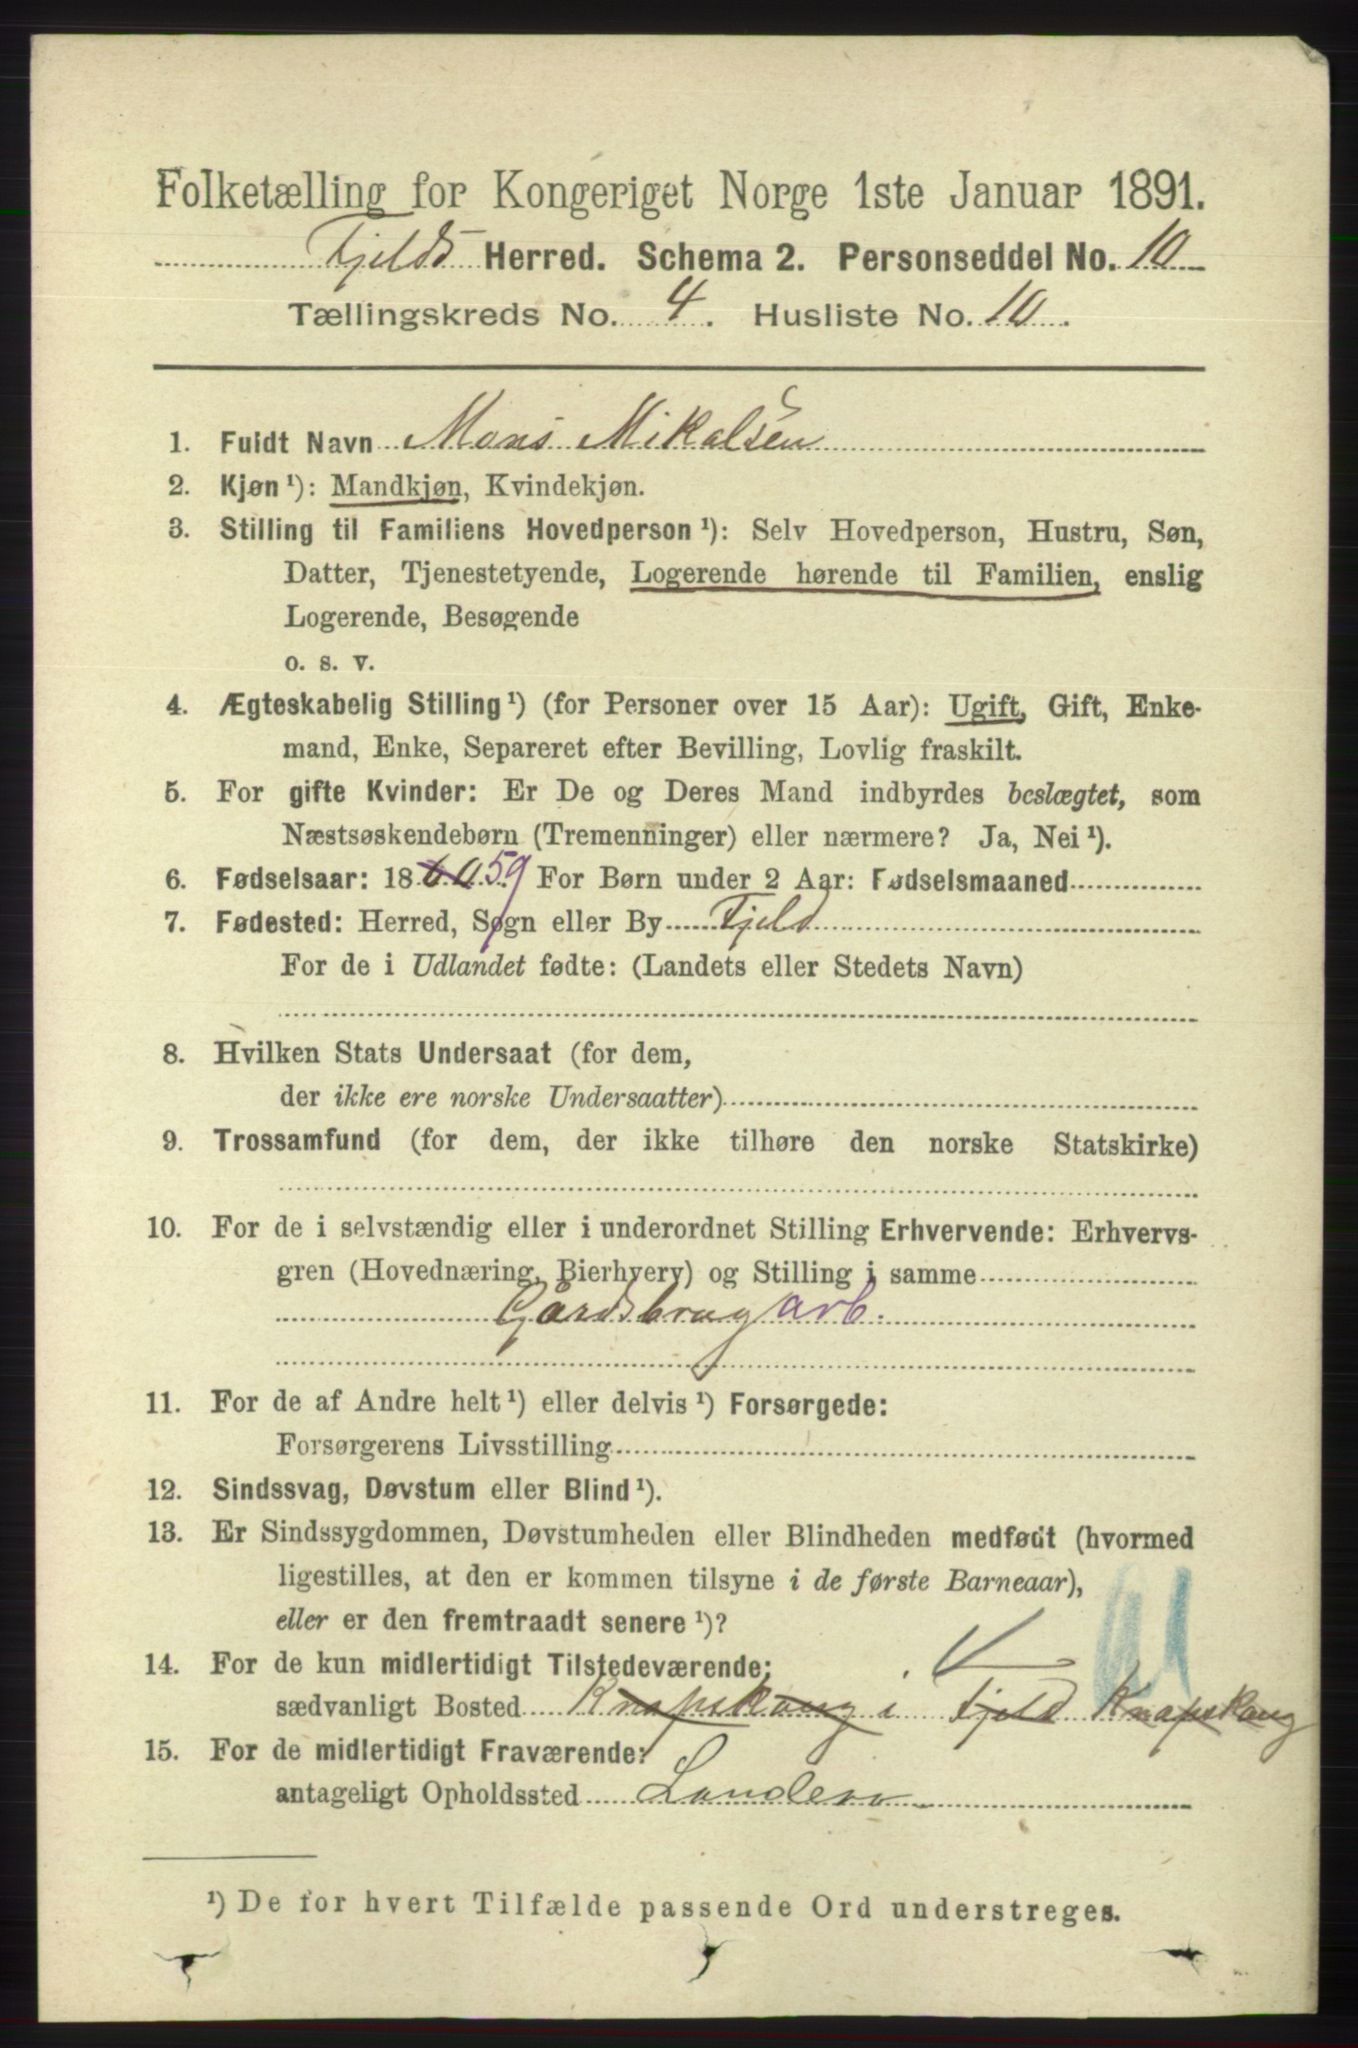 Folketælling for Kongeriget Norge 1ste Januar 1891.
Fjelds Herred. Schema 2. Personseddel No. 10
Tællingskreds No. 4. Husliste No. 10.
1. Fuldt Navn Mons Mikalsen
2. Kjøn ¹): Mandkjøn, Kvindekjøn.
3. Stilling til Familiens Hovedperson ¹): Selv Hovedperson, Hustru, Søn,
Datter, Tjenestetyende, Logerende hørende til Familien, enslig
Logerende, Besøgende
o. s. v.
4. Ægteskabelig Stilling ¹) (for Personer over 15 Aar): Ugift, Gift, Enke-
mand, Enke, Separeret efter Bevilling, Lovlig fraskilt.
5. For gifte Kvinder: Er De og Deres Mand indbyrdes beslægtet, som
Næstsøskendebørn (Tremenninger) eller nærmere? Ja, Nei ¹).
6. Fødselsaar: 18 60 59 For Børn under 2 Aar: Fødselsmaaned
7. Fødested: Herred, Sogn eller By Fjeld
For de i Udlandet fødte: (Landets eller Stedets Navn)
8. Hvilken Stats Undersaat (for dem,
der ikke ere norske Undersaatter)
9. Trossamfund (for dem, der ikke tilhøre den norske Statskirke)
10. For de i selvstændig eller i underordnet Stilling Erhvervende: Erhvervs-
gren (Hovednæring, Bierhverv) og Stilling i samme
Gårdsbrug arb.
11. For de af Andre helt ¹) eller delvis ¹) Forsørgede:
Forsørgerens Livsstilling
12. Sindssvag, Døvstum eller Blind ¹).
13. Er Sindssygdommen, Døvstumheden eller Blindheden medfødt (hvormed
ligestilles, at den er kommen tilsyne i de første Barneaar),
eller er den fremtraadt senere ¹)?
14. For de kun midlertidigt Tilstedeværende:
sædvanligt Bosted Knapskaug i Fjeld Knapskaug
15. For de midlertidigt Fraværende:
antageligt Opholdssted
¹) De for hvert Tilfælde passende Ord understreges.